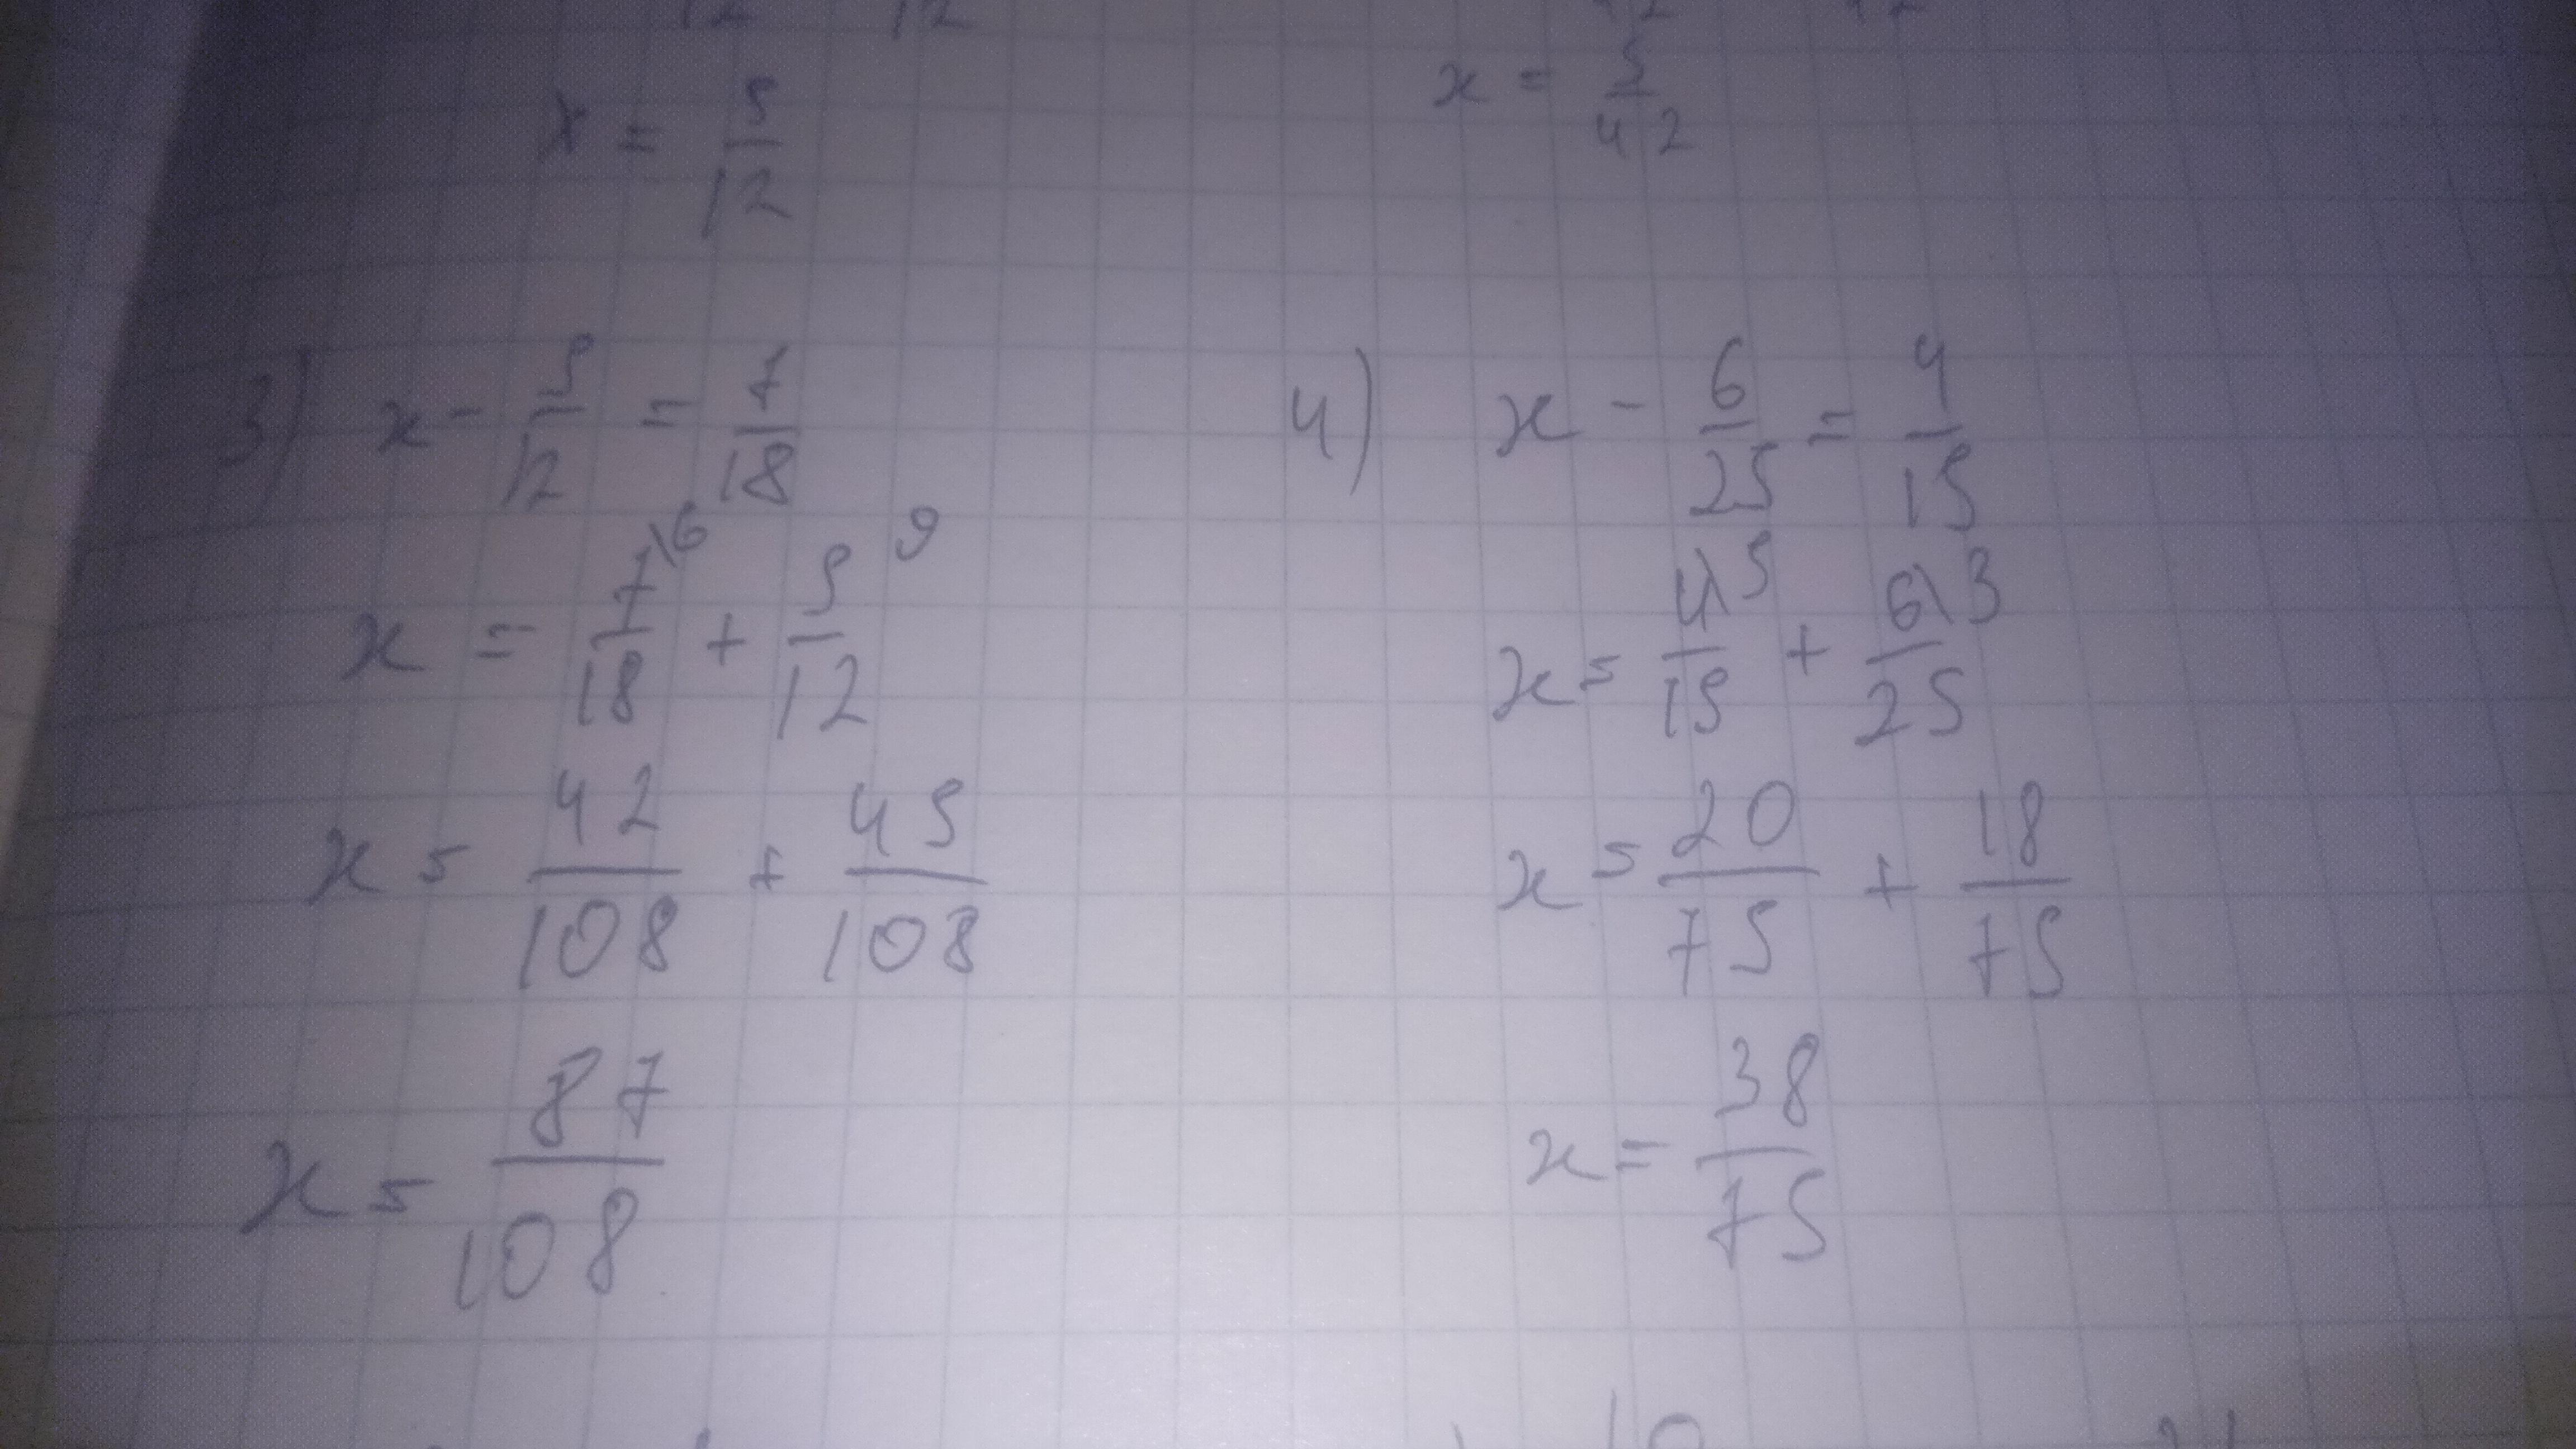 x = 5/12
x = 5/42
3) x - 5/12 = 7/18
x = 7\6/18 + 5 9/12
x = 42/108 + 45/108
x = 87/108
4) x - 6/25 = 4/15
x = 4\5/15 + 6\3/25
x = 20/75 + 18/75
x = 38/75